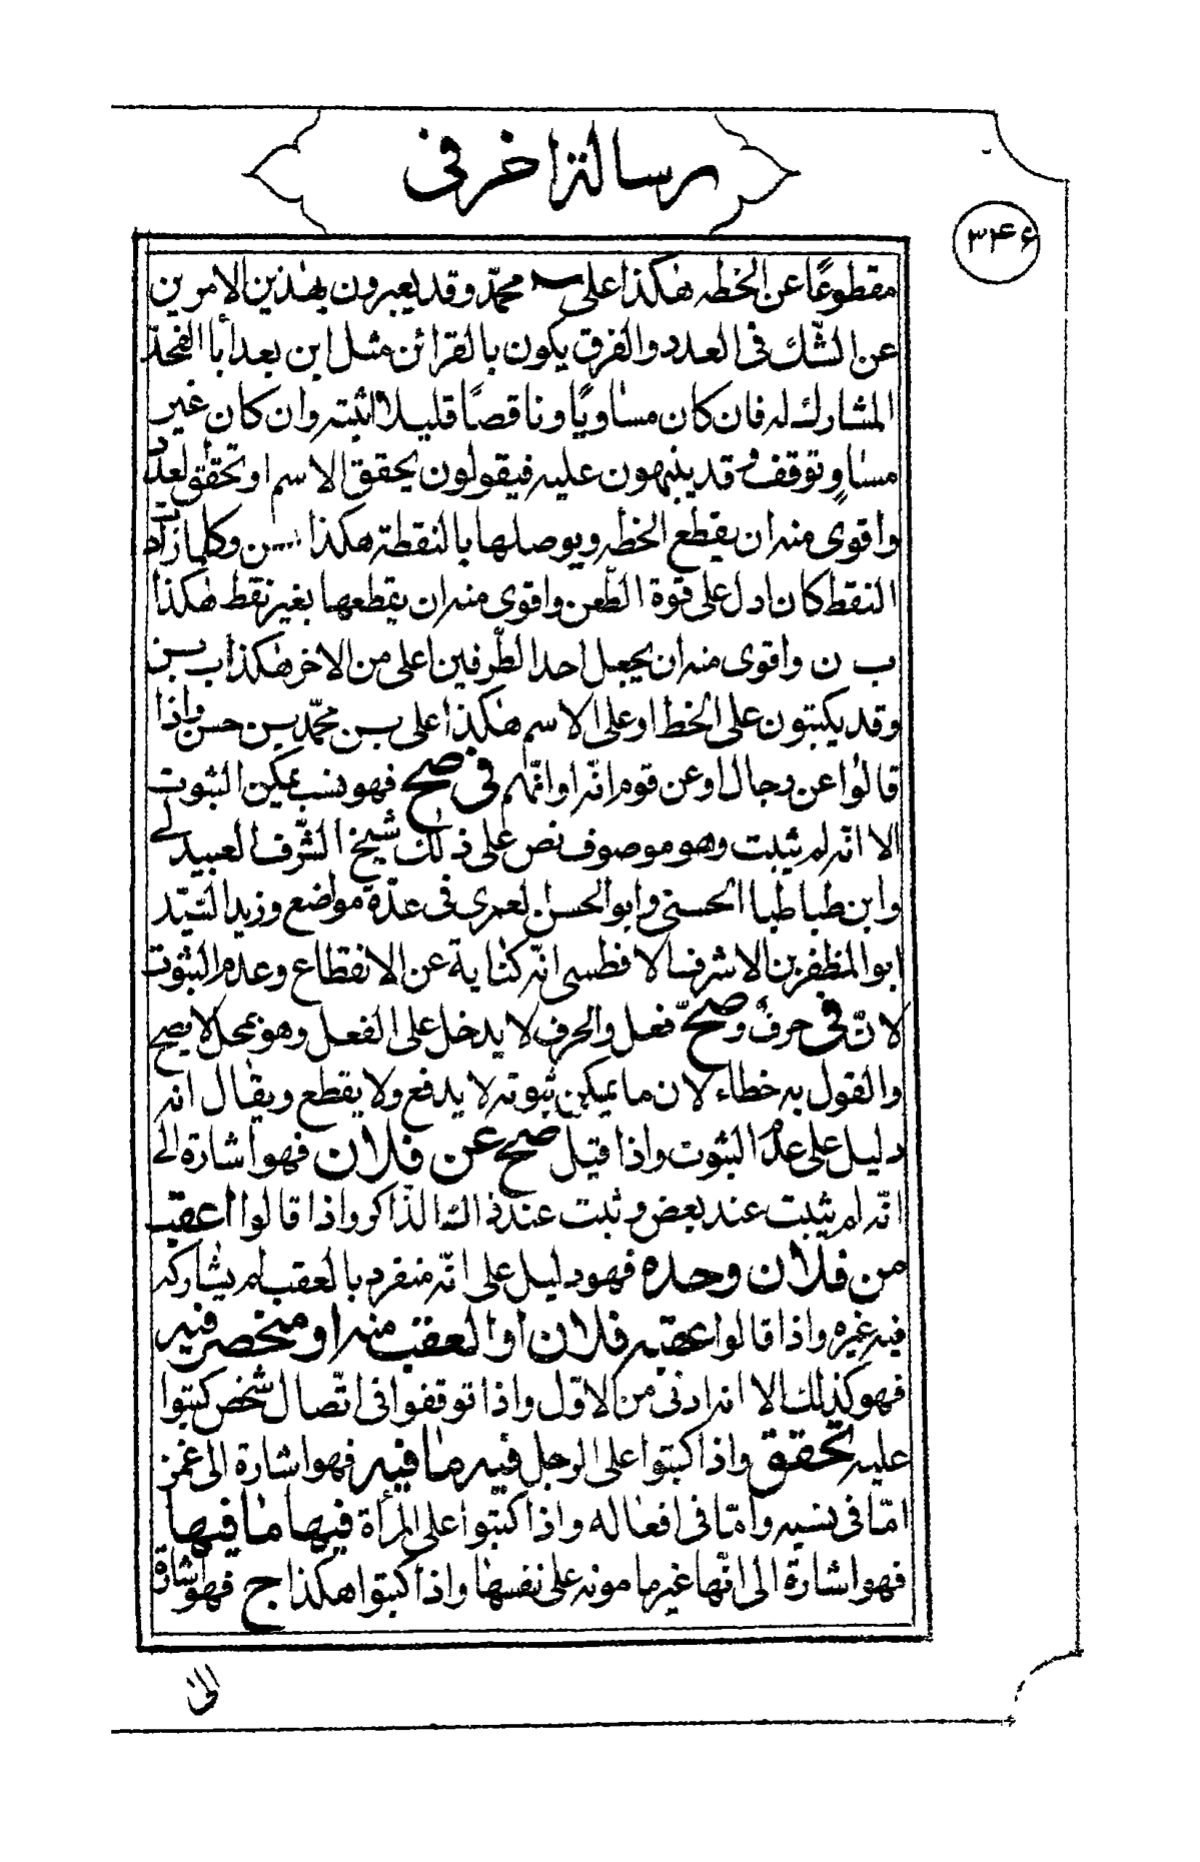 رسالة اخر فى
٣۴۶
مقطوعًا عن الخطه هكذا على محمّد وقد يعبرون بهذين الامرين
عن الشّك فى العدد والفرق يكون بالقرائن مثل ابن يعد أبا الفخذ
المشارك له فان كان مساويًا وناقصًا قليلا اثبته وان كان غير
مساوٍ توقف وقد ينبهون عليه فيقولون يحقق الاسم او تحقق لعدد
واقوى منه ان يقطع الخطه ويوصلها بالنقطة هكذا ب....ن وكلما زادت
النقط كان ادل على قوة الطّعن واقوى منه ان يقطعها بغير نقط هكذا
ب ن واقوى منه ان يجعل احد الطّرفين اعلى من الاخر هكذا ب بن
وقد يكتبون على الخط او على الاسم هكذا على بن محمّد بن حسن واذا
قالوا عن رجال او عن قوم انّه او انّهم فى صح فهو نسب يمكن الثبوت
الا انّه لم يثبت وهو موصوف نص على ذلك شيخ الشّرف العبيدلى
وابن طباطبا الحسنى وابو الحسن لعمرى فى عدّة مواضع وزيد السّيد
ابو المظفر بن الاشرف الافطسى انّه كناية عن الانقطاع وعدم الثبوت
لانّ فى حرف وصحّ فعل والحرف لا يدخل على الفعل وهو بمحل لا يصح
والقول به خطاء لان ما يمكن ثبوته لا يدفع ولا يقطع ويقال انه
دليل على عدم الثبوت واذا قيل صح عن فلان فهو اشارة الى
انّه لم يثبت عند بعض وثبت عند ذلك الذّاكر واذا قالوا اعقب
من فلان وحده فهو دليل على انّه منفرد بالعقب لم يشاركه
فيه غيره واذا قالوا عقبه فلان او العقب منه او منحصر فيه
فهو كذلك الا انه ادنى من الاوّل واذا توقفوا فى اتّصال شخص كتبوا
عليه تحقق واذا كتبوا على الرجل فيه ما فيه فهو اشارة الى غمز
امّا فى نسبه وامّا فى افعاله واذا كتبوا على المرأة فيها ما فيها
فهو اشارة الى انّها غير مامونه على نفسها واذا كتبوا هكذا ج فهو اشارة
الى